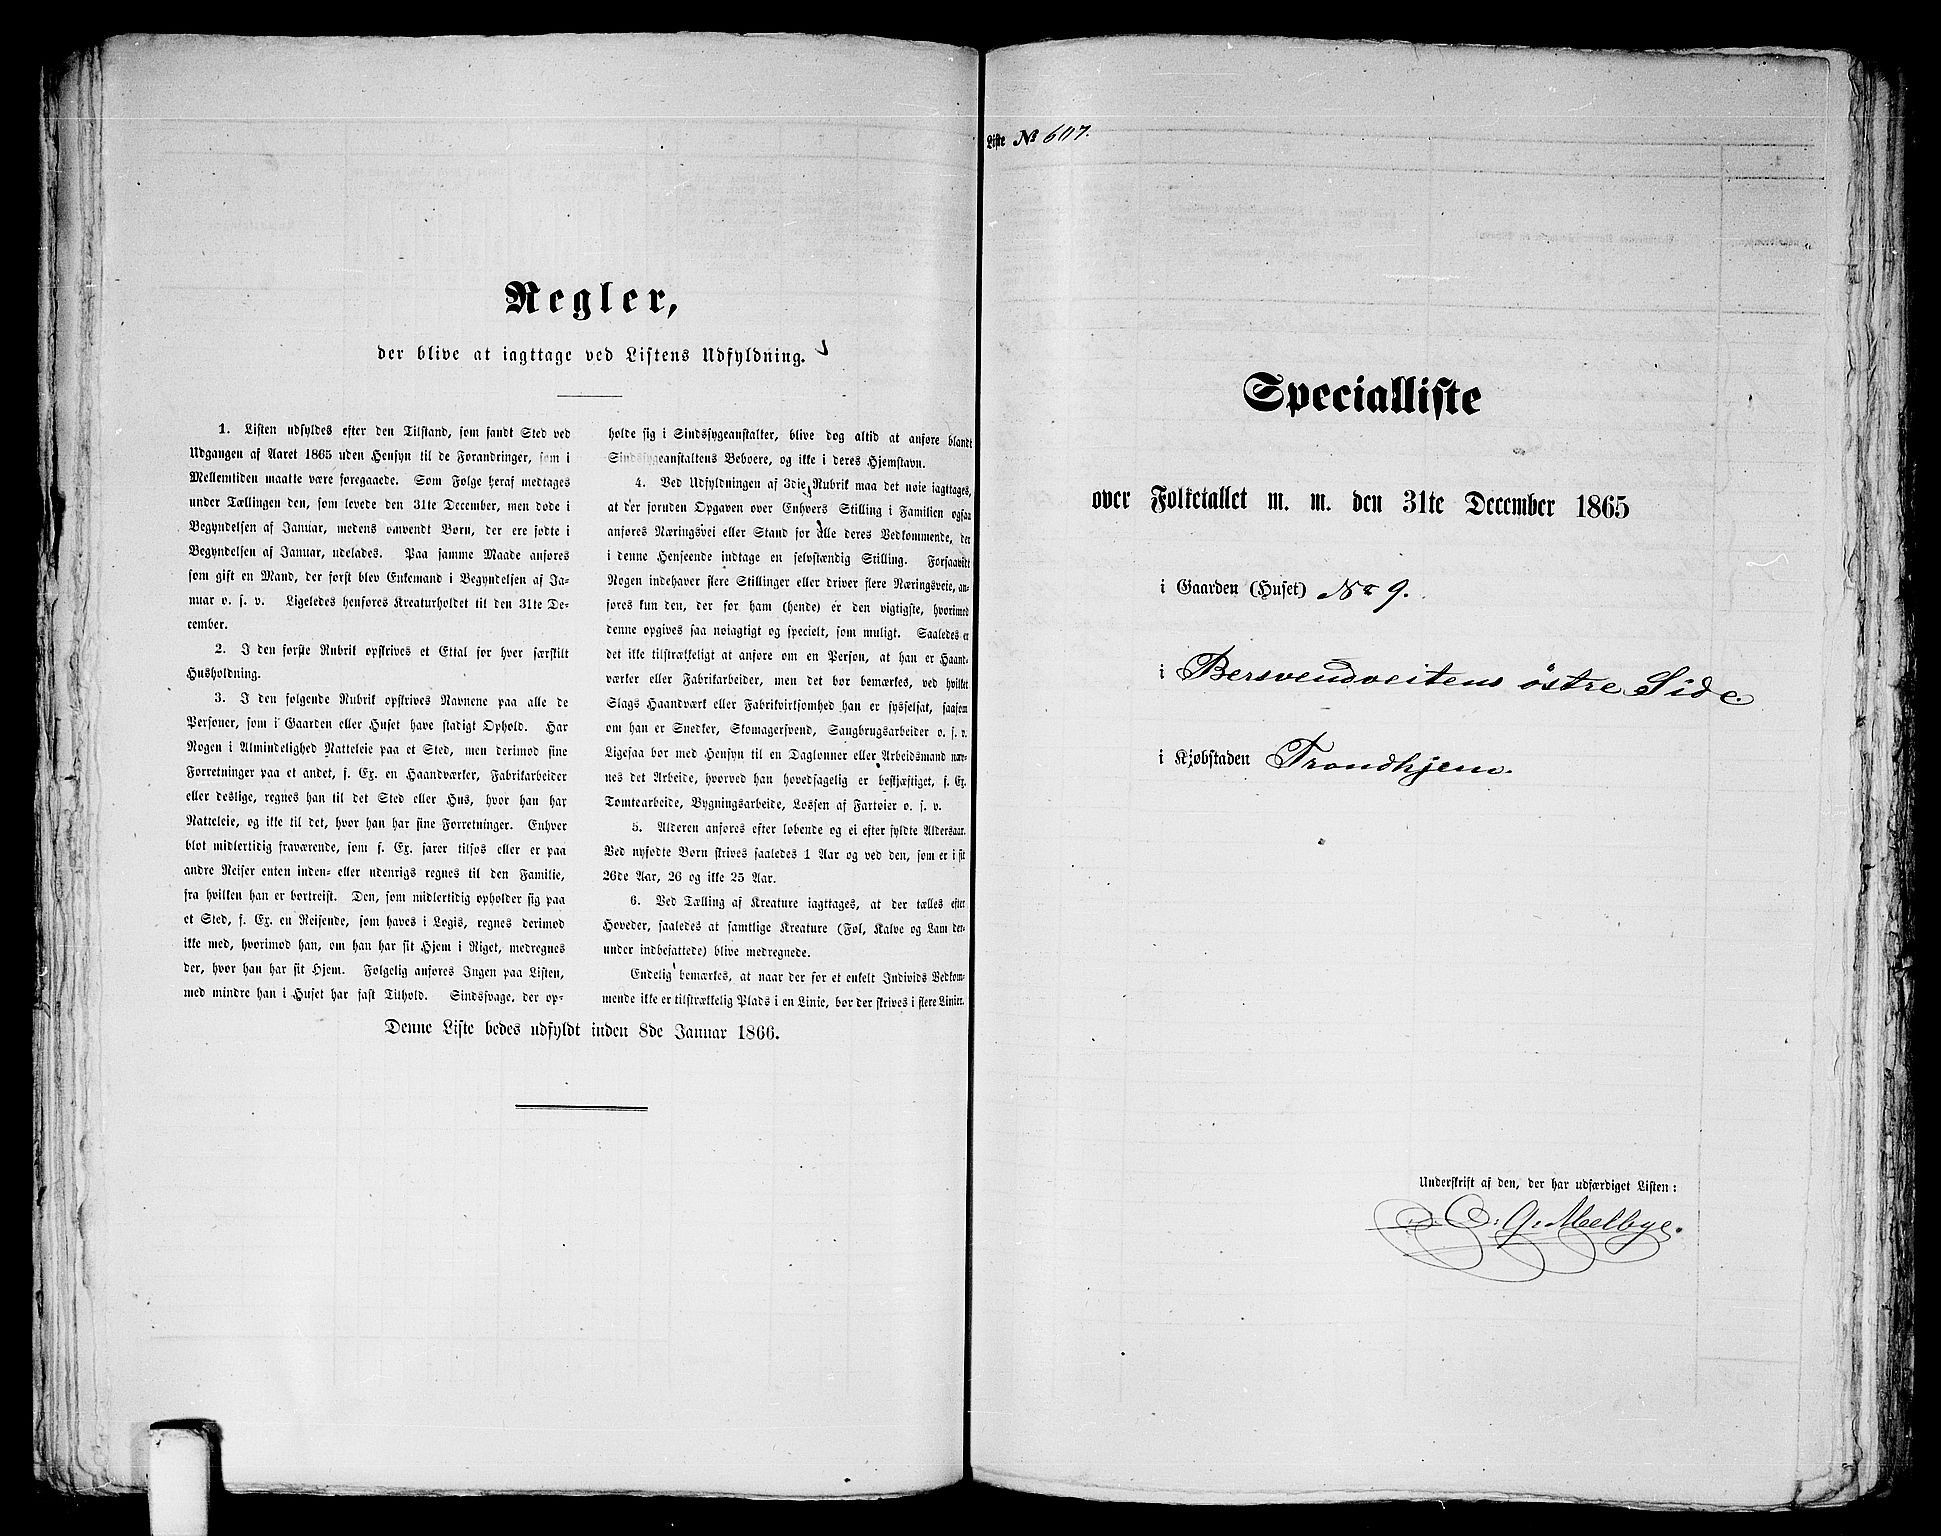 Regler,
der blive at iagttage ved Listens Udfyldning.
1. Listen udfyldes efter den Tilstand, som fandt Sted ved
Udgangen af Aaret 1865 uden Hensyn til de Forandringer, som i
Mellemtiden maatte være foregaaede. Som Følge heraf medtages
under Tællingen den, som levede den 31te December, men døde i
Begyndelsen af Januar, medens omvendt Børn, der ere fødte i
Begyndelsen af Januar, udelades. Paa samme Maade anføres
som gift en Mand, der først blev Enkemand i Begyndelsen af Ja-
nuar o. s. v. Ligeledes henføres Kreaturholdet til den 31te De-
cember.
2. I den første Rubrik opskrives et Ettal for hver særskilt
Husholdning.
3. I den følgende Rubrik opskrives Navnene paa alle de
Personer, som i Gaarden eller Huset have stadigt Ophold. Har
Nogen i Almindelighed Natteleie paa et Sted, men derimod sine
Forretninger paa et andet, f. Ex. en Haandværker, Fabrikarbeider
eller deslige, regnes han til det Sted eller Hus, hvor han har
Natteleie, og ikke til det, hvor han har sine Forretninger. Enhver
blot midlertidig fraværende, som f. Ex. farer tilsøs eller er paa
andre Reiser enten inden- eller udenrigs regnes til den Familie,
fra hvilken han er bortreist. Den, som midlertidig opholder sig paa
et Sted, f. Ex. en Reisende, som haves i Logis, regnes derimod
ikke med, hvorimod han, om han har sit Hjem i Riget, medregnes
der, hvor han har sit Hjem. Følgelig anføres Ingen paa Listen,
med mindre han i Huset har fast Tilhold. Sindssvage, der op-
holde sig i Sindssygeanstalter, blive dog altid at anføre blandt
Sindssygeanstaltens Beboere, og ikke i deres Hjemstavn.
4. Ved Udfyldningen af 3die Rubrik maa det nøie iagttages,
at der foruden Opgaven over Enhvers Stilling i Familien ogsaa
anføres Næringsvei eller Stand for alle deres Vedkommende, der
i denne Henseende indtage en selvstændig Stilling. Forsaavidt
Nogen indehaver flere Stillinger eller driver flere Næringsveie, an-
føres kun den, der for ham (hende) er den vigtigste, hvorimod
denne opgives saa nøiagtigt og specielt, som muligt. Saaledes er
det ikke tilstrækkeligt at anføre om en Person, at han er Haand-
værker eller Fabrikarbeider, men det bør bemærkes, ved hvilket
Slags Haandværk eller Fabrikvirksomhed han er sysselsat, saasom
om han er Snedker, Skomagersvend, Saugbrugsarbeider o. s. v.
Ligesaa bør med Hensyn til en Daglønner eller Arbeidsmand næv-
nes det Arbeide, hvorved han hovedsagelig er beskjæftiget, f. Ex.
Tomtearbeide, Bygningsarbeide, Lossen af Fartøier o. s. v.
5. Alderen anføres efter løbende og ei efter fyldte Aldersaar.
Ved nyfødte Børn skrives saaledes 1 Aar og ved den, som er i sit
26de Aar, 26 og ikke 25 Aar.
6. Ved Tælling af Kreature iagttages, at der tælles efter
Hoveder, saaledes at samtlige Kreature (Føl, Kalve og Lam der-
under indbefattede) blive medregnede.
Endelig bemærkes, at naar der for et enkelt Individs Vedkom-
mende ikke er tilstrækkelig Plads i en Linie, bør der skrives i flere Linier.
Denne Liste bedes udfyldt inden 8de Januar 1866.
Liste № 607.
Specialliste
over Folketallet m. m. den 31te December 1865
i Gaarden (Huset) No 9.
i Bersvendveitens östre Side
i Kjøbstaden Trondhjem.
Underskrift af den, der har udfærdiget Listen:
C: G. Melbye.